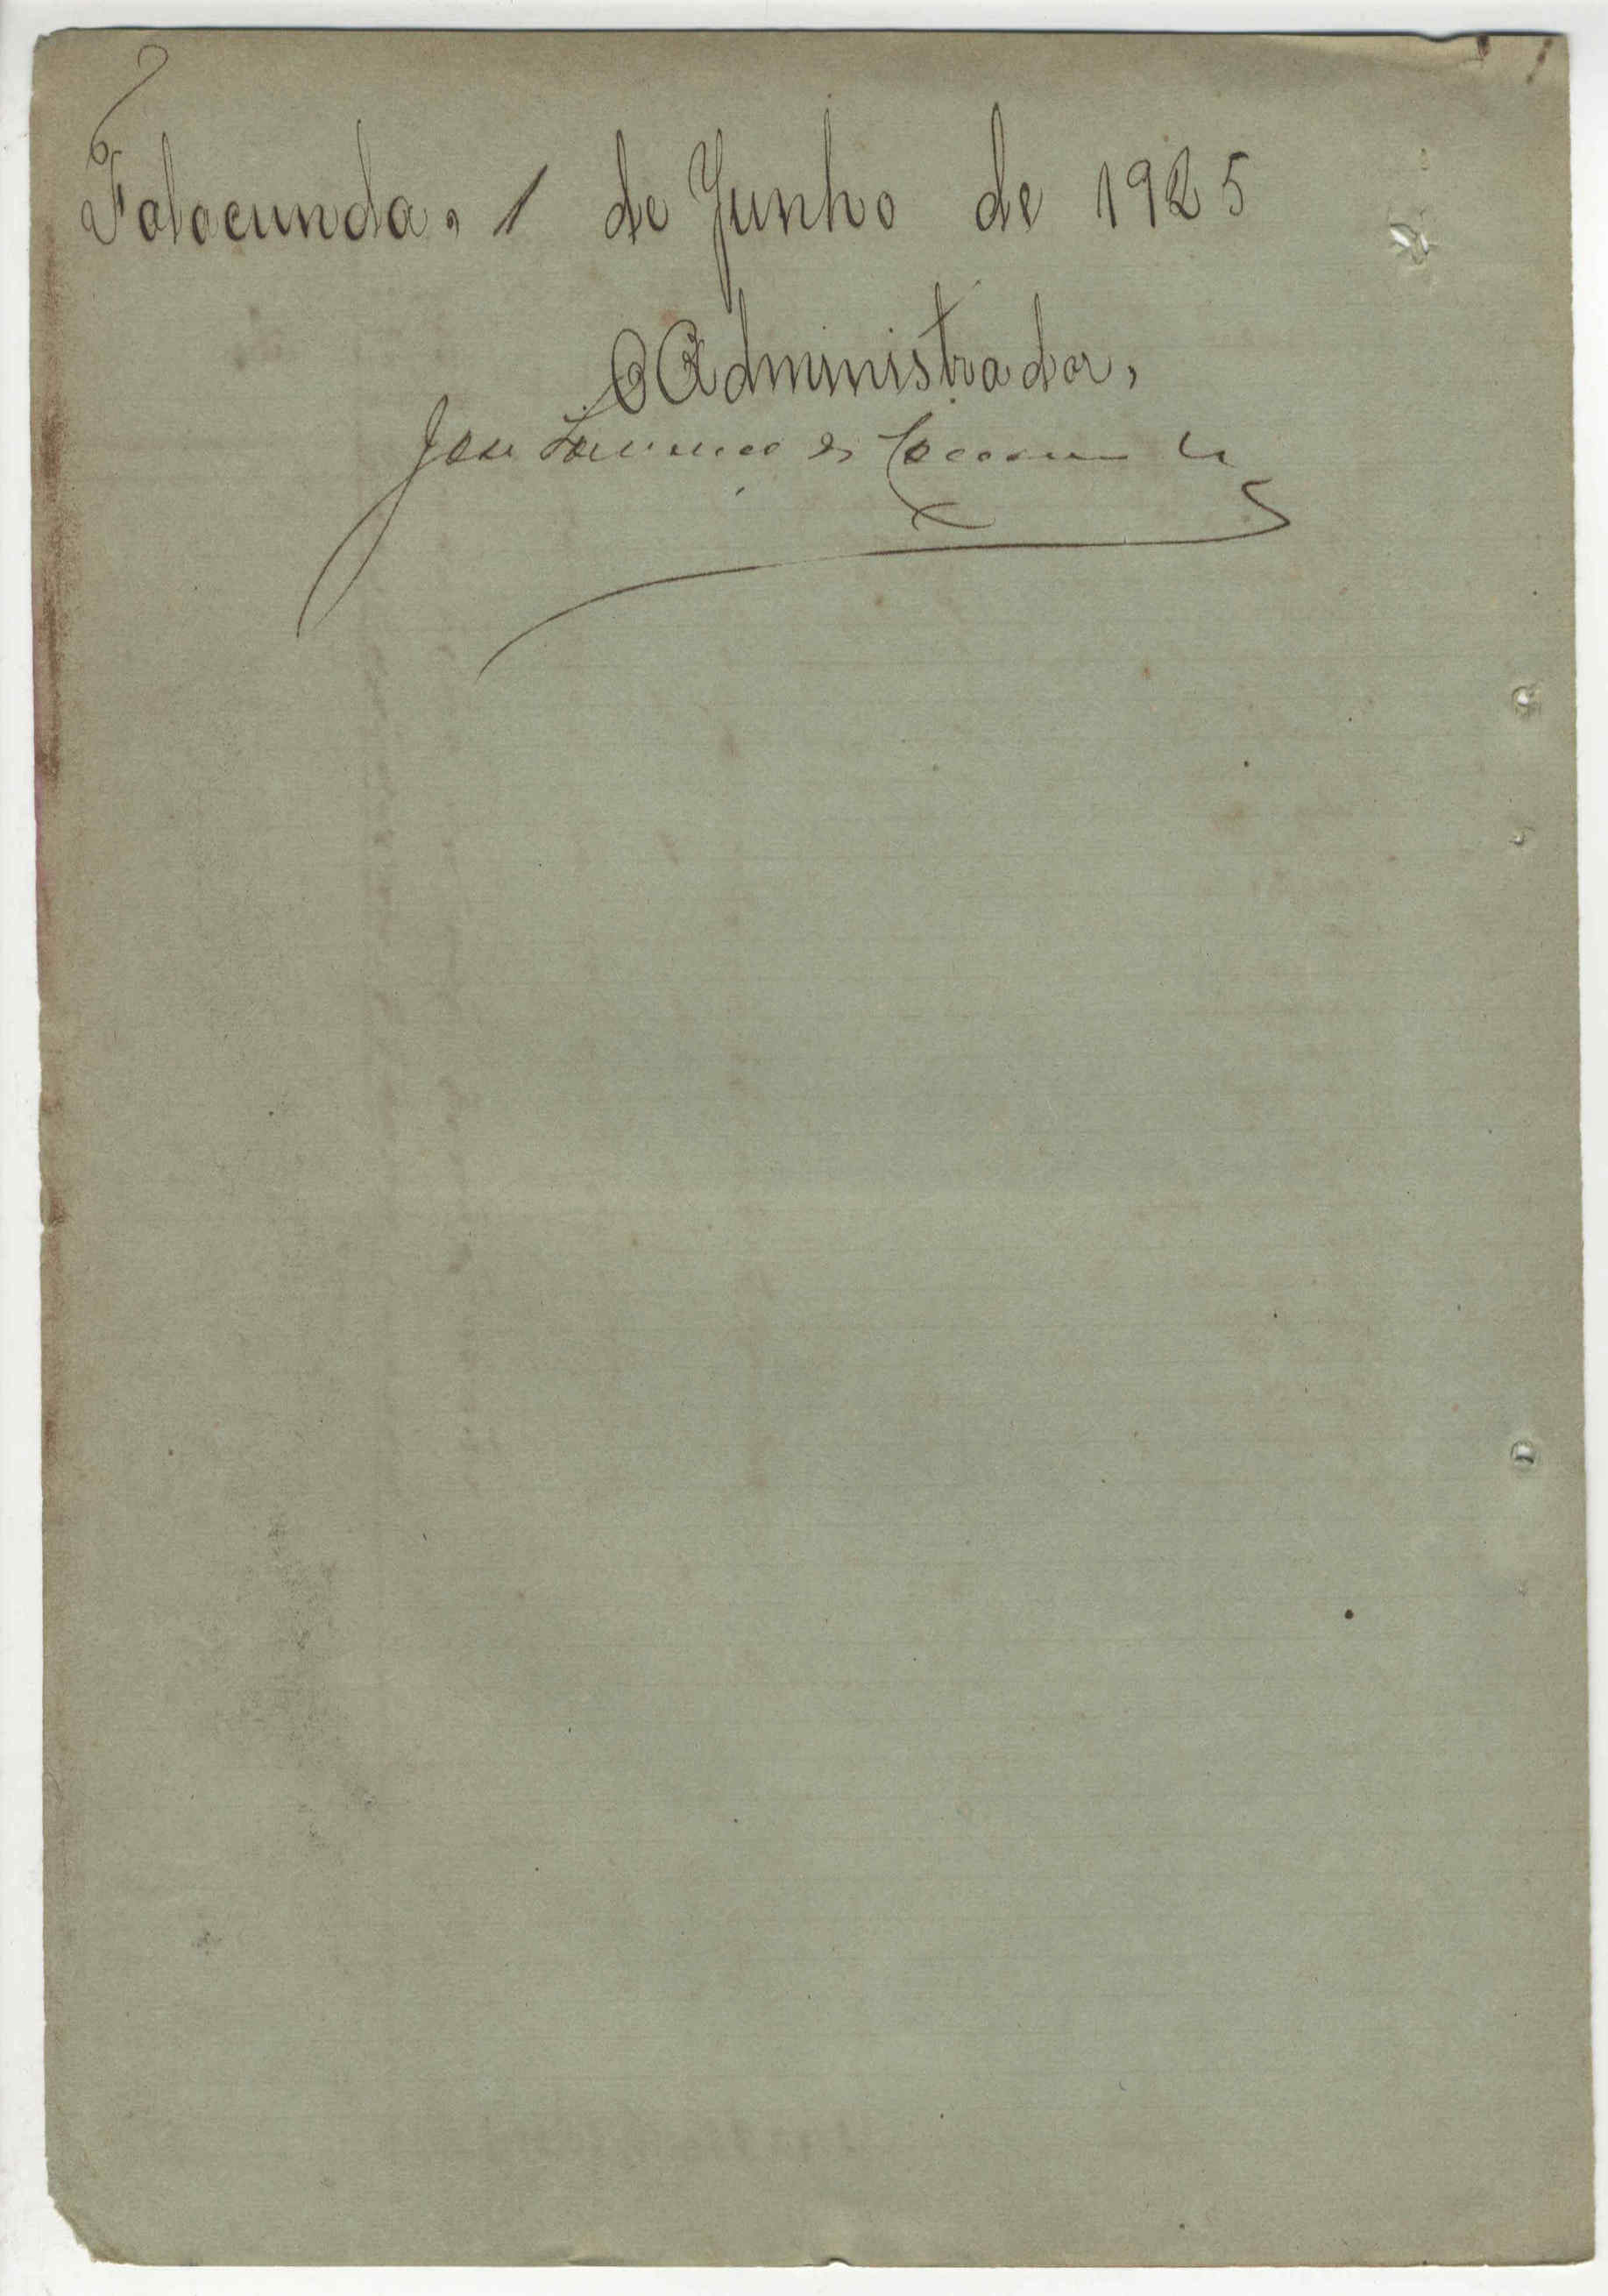 Folacunda, 1 de Junho de 1925
O Administrador,
José